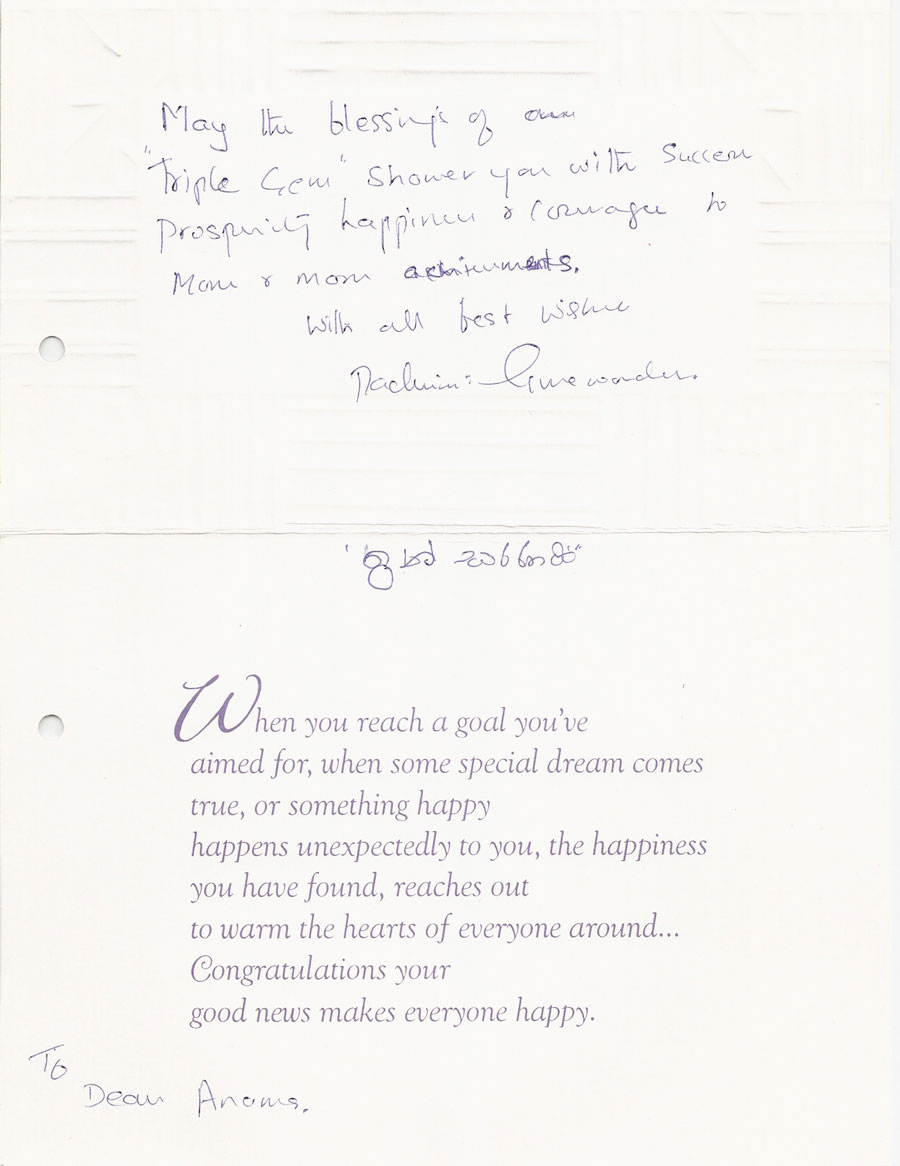 May the blessings of our
"Triple Gem" shower you with success
prosperity happiness & courage to
More & more achievements.
With all best wishes
When you reach a goal you've
aimed for, when some special dream comes
true, or something happy
happens unexpectedly to you, the happiness
you have found, reaches out
to warm the hearts of everyone around...
Congratulations your
good news makes everyone happy.
To
Dear Anoma.